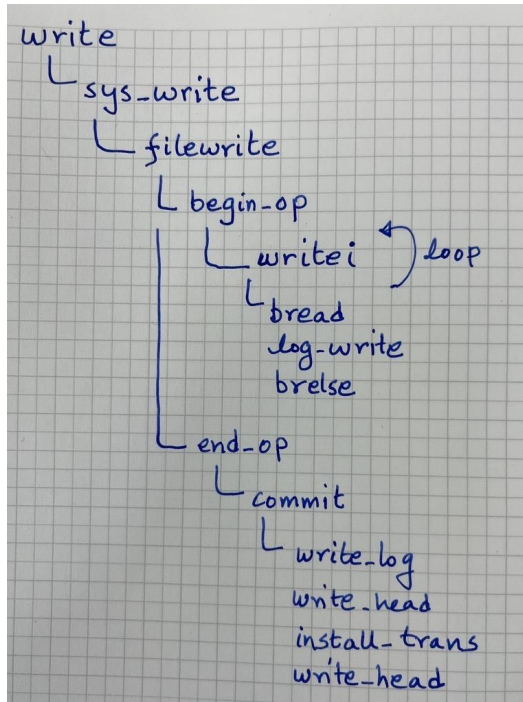 write
sys_write
filewrite
begin-op
writei loop
bread
log-write
brelse
end-op
commit
write_log
write_head
install_trans
write_head